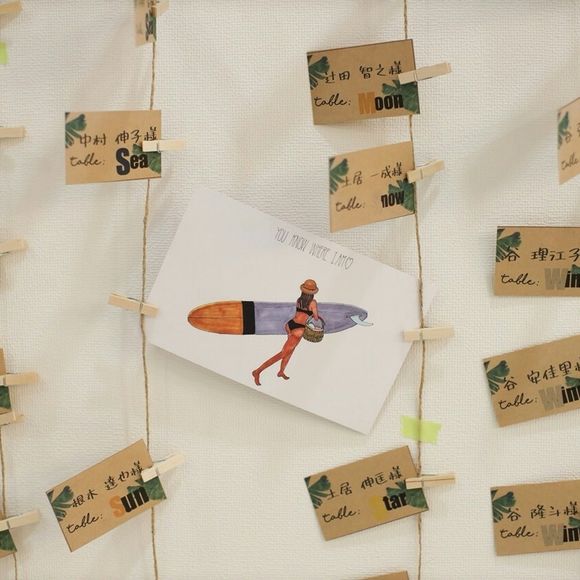 辻田 智之様
table: Moon
中村 伸子様
table: Sea
土居 一成様
table: now
YOU KNOW WHERE I AM♡
谷 理江子
table: Win
谷 安佳里様
table: Win
根木 達也様
table: Sun
土居 伸匡様
table: Star
谷 隆斗様
table: Win